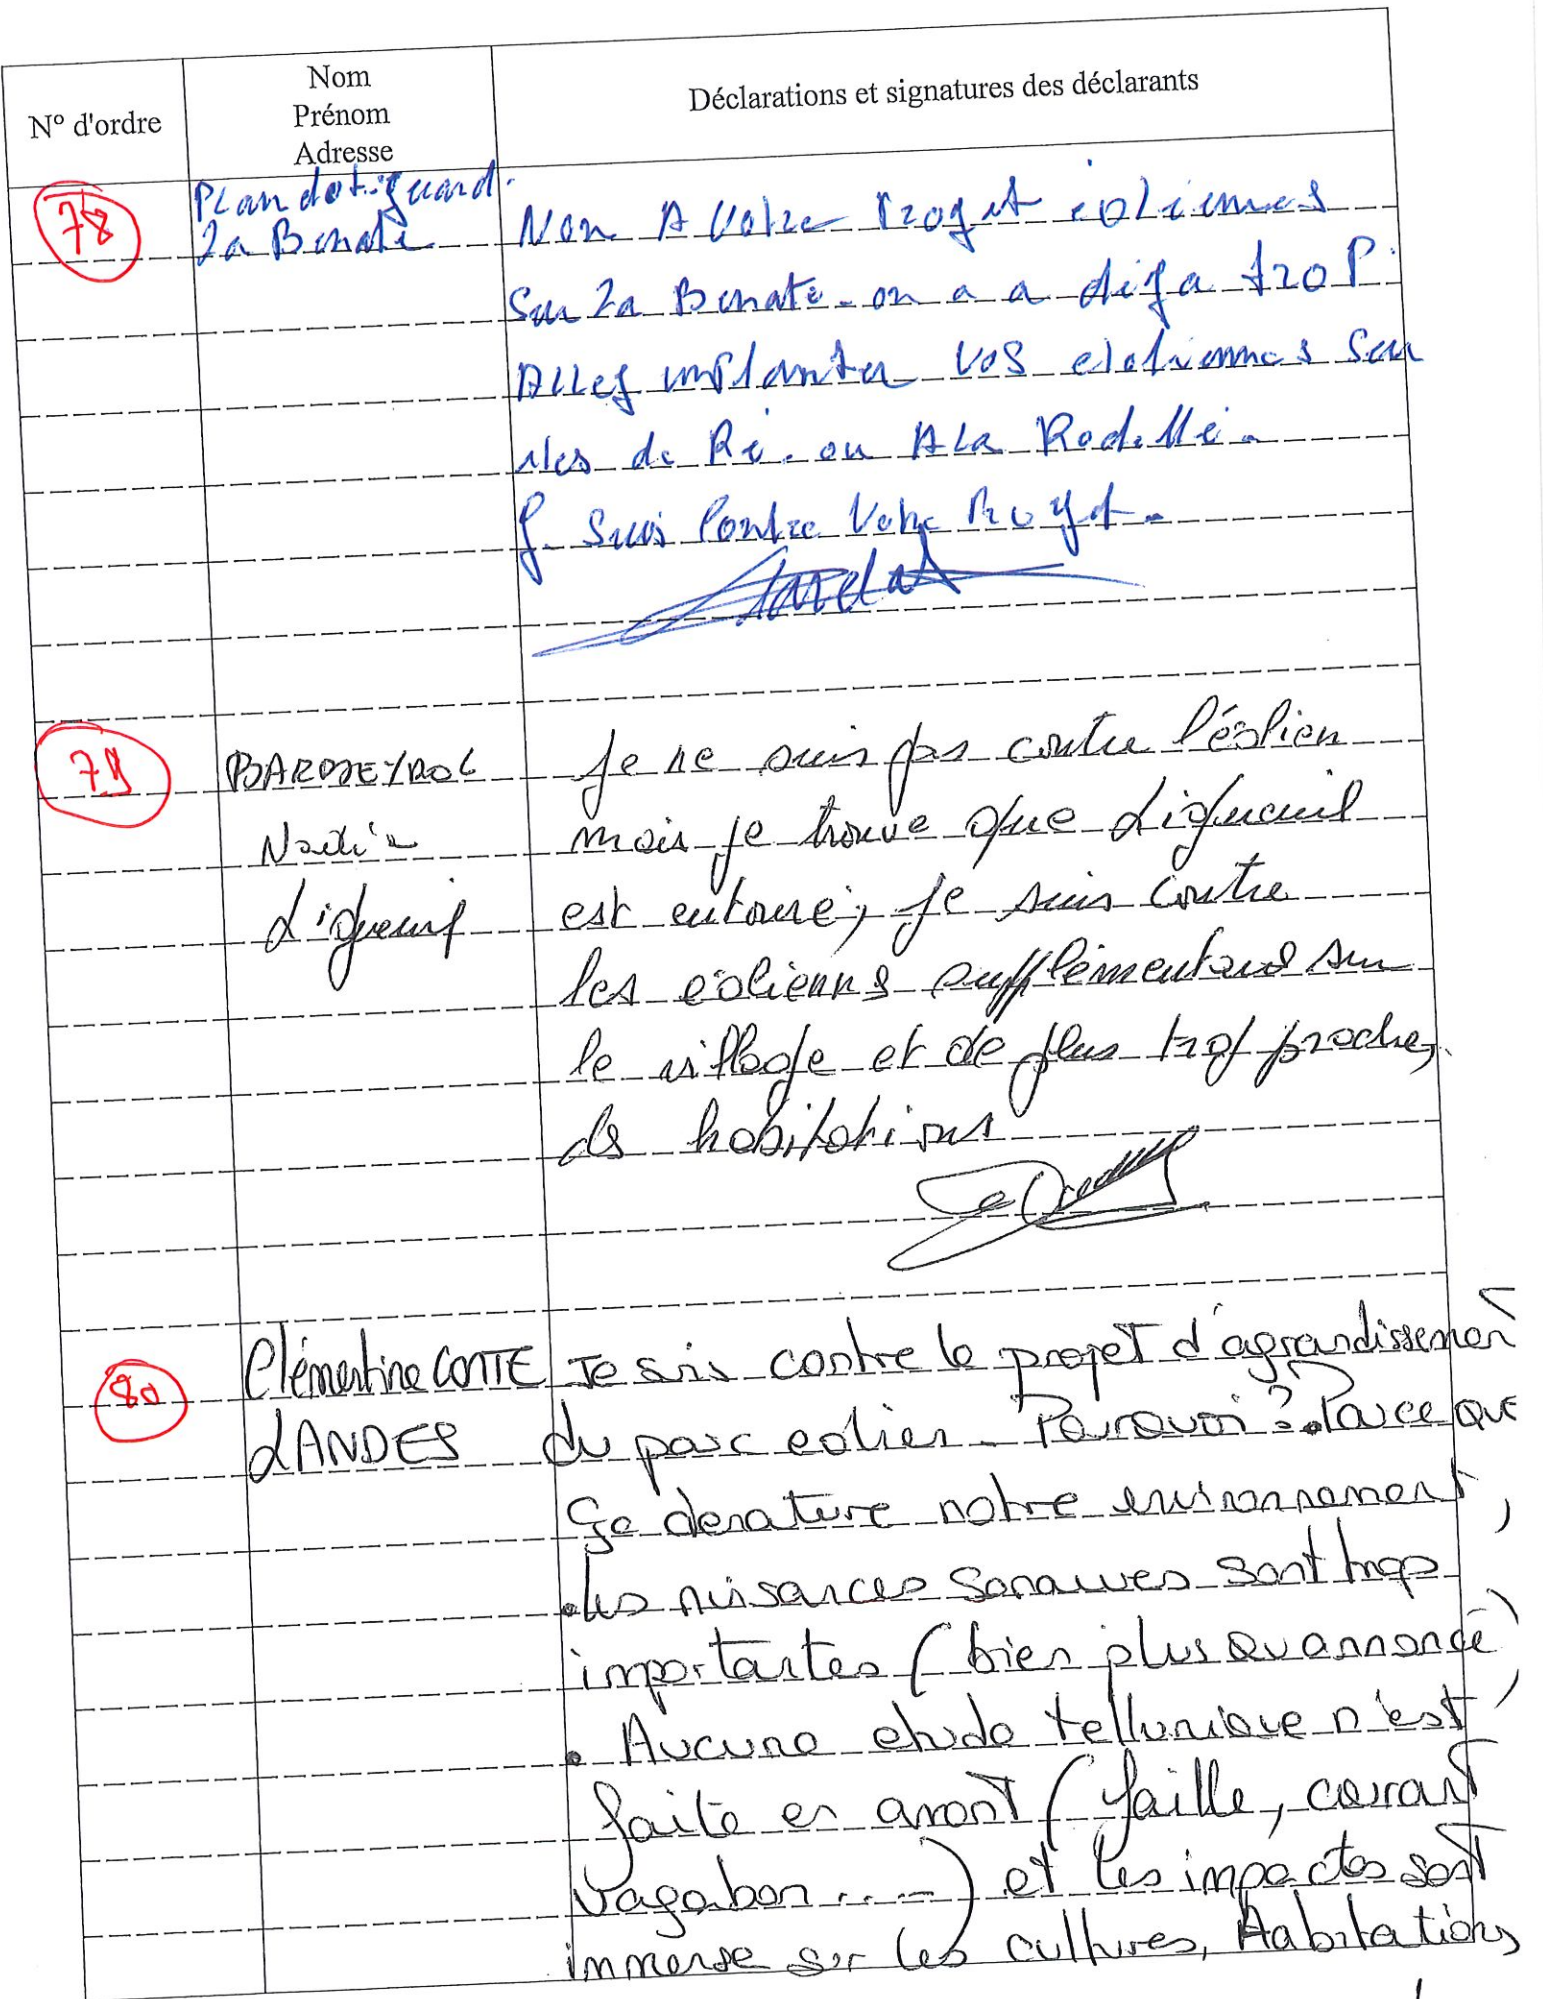 N° d'ordre
Nom
Prénom
Adresse
Déclarations et signatures des déclarants
78
la Benate
Non A Votre Proget éoliennes
Sur la Benate. on a a deja trop.
Allez implanter vos eloliennes sur
iles de Ré. ou A La Rochelle.
J. Suis Contre Votre Proyet.
79
BARDEYROL
Nadia
Ligueuil
Je ne suis pas contre l'éolien
mais je trouve que Ligueuil
est entouré, je suis contre
les éoliennes supplémentaires sur
le village et de plus trop proche,
des habitations
80
Clémentine CONTE
LANDES
Je suis contre le projet d'agrandissement
du parc eolien. Pourquoi? Parce que
Ça denature notre environnement,
. les nuisances sonores sont trop
importantes (bien plus qu'annoncé)
. Aucune etude tellurique n'est
faite en avant (faille, courant
vagabon....) et les impactes sont
immense sur les cultures, Habitations,